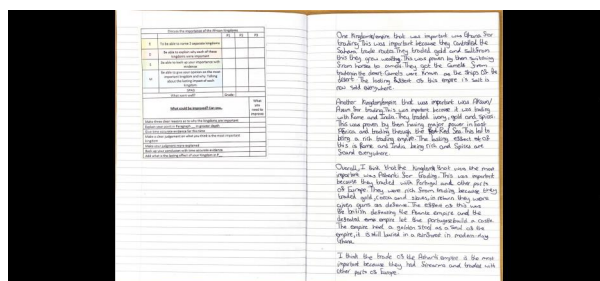 Discuss the importance of the African Kingdoms
P1 P2 P3
To be able to name 3 separate kingdoms
Be able to explain why each of these kingdoms were important
Be able to back up your importance with evidence
Be able to give your opinion on the most important kingdom and why. Talking about the lasting impact of each kingdom.
SPAG
What went well? Grade
What could be improved? You can..
What you need to improve
Make three clear reasons as to why the kingdoms are important
Explain your point in Paragraph __ in greater depth
Give more accurate evidence for the topic
Make a clear judgement on what you think is the most important kingdom
Make your judgement more explained
Back up your judgement with more accurate evidence
Add what is the lasting effect of your kingdom in P__
One Kingdom/empire that was important was Ghana for
trading. This was important because they controlled the
Sahara trade routes. They traded gold and salt from
this they grew wealthy. This was proven by them switching
from horses to camels. They got the camels from
trading in the desert. Camels were known as the ships of the
desert. The lasting effect of this empire is salt is
now sold everywhere.
Another Kingdom/empire that was important was Aksum/
Axum for trading. This was important because it was trading
with Rome and India. They traded ivory, gold and spices.
This was proven by them having major power in East
Africa and trading through the Red Sea. This led to
being a rich trading empire. The lasting effect of
this is Rome and India being rich and Spices are
found everywhere.
Overall, I think that the kingdom that was the most
important was Ashanti for trading. This was important
because they traded with Portugal and other parts
of Europe. They were rich from trading because they
traded gold, cocoa and slaves, in return they were
given guns as defence. The effect of this was
the british defeating the Asante empire and the
defeated empire let the portuguese build a castle.
The empire had a golden stool as a soul of the
empire, it is still buried in a rainforest in modern-day
Ghana.
I think the trade of the Ashanti empire is the most
important because they had firearms and traded with
other parts of Europe.